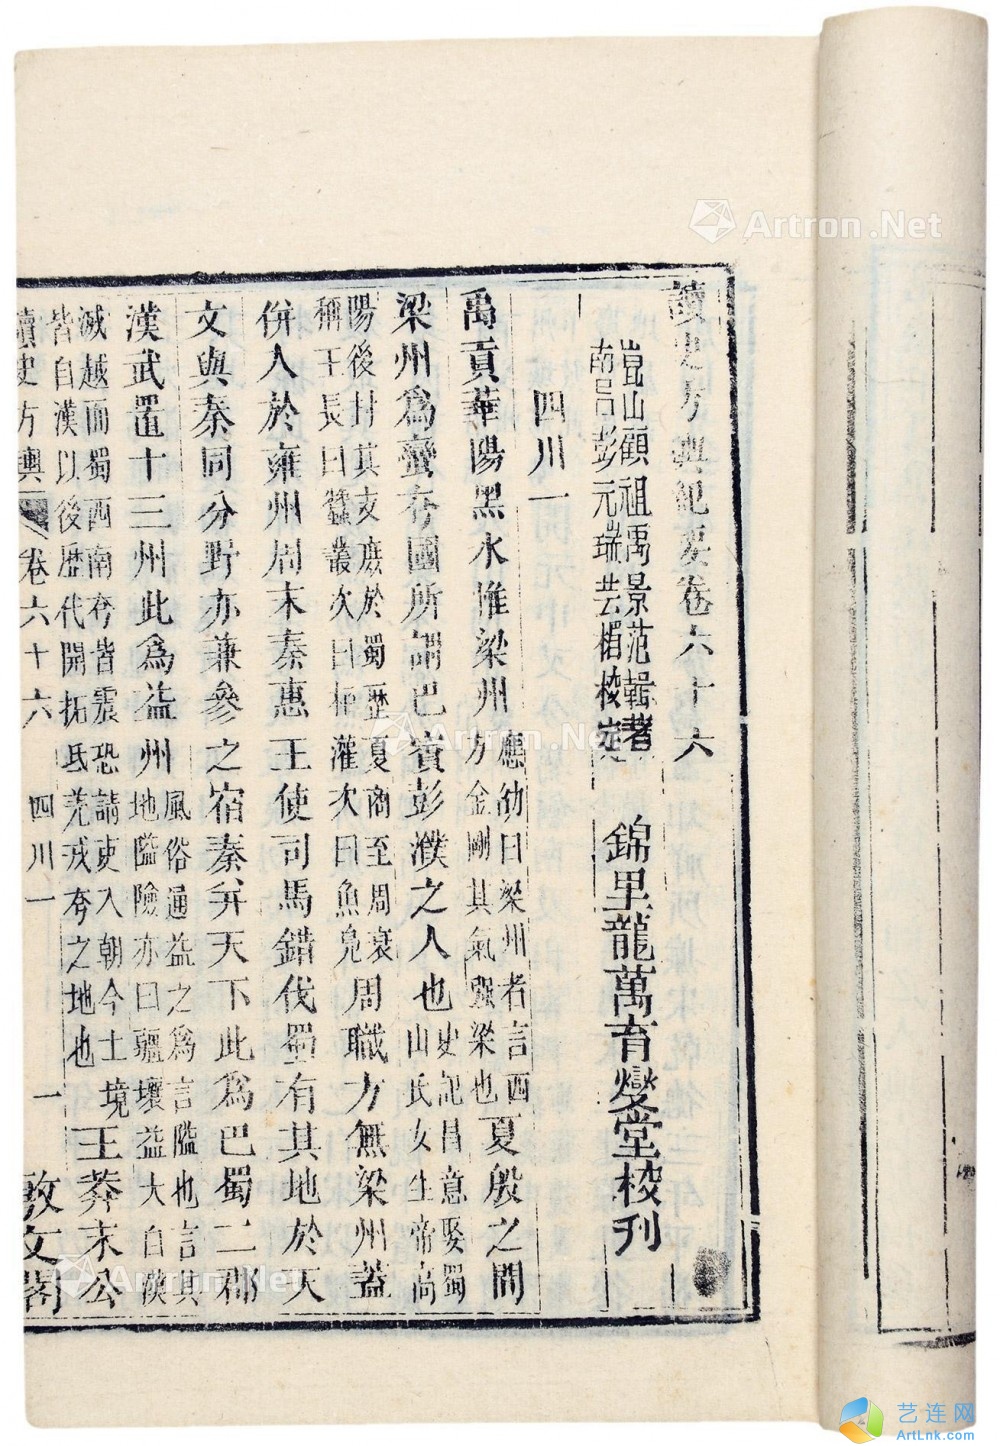 讀史方輿紀要卷六十六
崑山顧祖禹景范輯著
南昌彭元瑞芸楣校定
錦里龍萬育燮堂校刊
四川一
禹貢華陽黑水惟梁州應劭曰梁州者言西方金剛其氣强梁也夏殷之間
梁州爲蠻夷國所謂巴賨彭濮之人也史記昌意娶蜀山氏女生帝高
陽後封其支庶於蜀歷夏商至周衰稱王長曰蠶叢次曰柏灌次曰魚鳧周職方無梁州蓋
併入於雍州周末秦惠王使司馬錯伐蜀有其地於天
文與秦同分野亦兼參之宿秦并天下此爲巴蜀二郡
漢武置十三州此爲益州風俗通益之爲言隘也言其地隘險亦曰疆壤益大自漢
滅越而蜀西南夷皆震恐請吏入朝今土境皆自漢以後歷代開拓氐羌戎夷之地也王莽末公
讀史方輿 卷六十六 四川一 一 敷文閣
Artron.Net
Artron.Net
Artron.Net
艺连网
ArtLnk.com